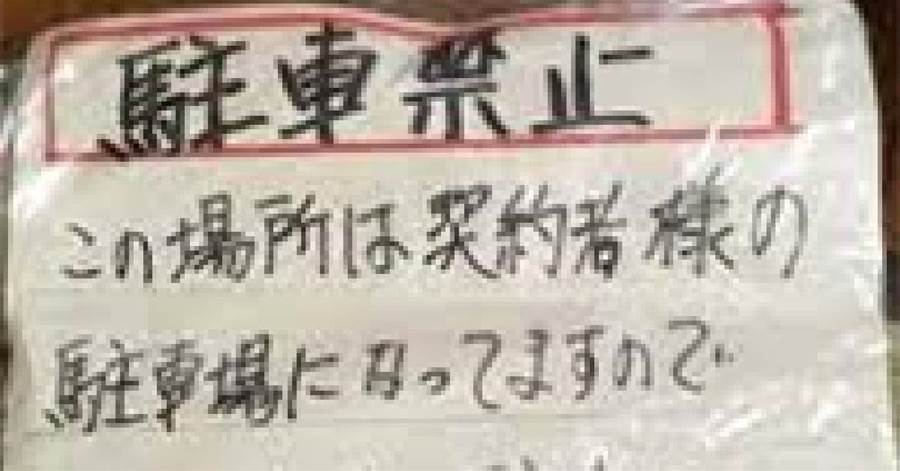 駐車禁止
この場所は契約者様の
駐車場になってますので